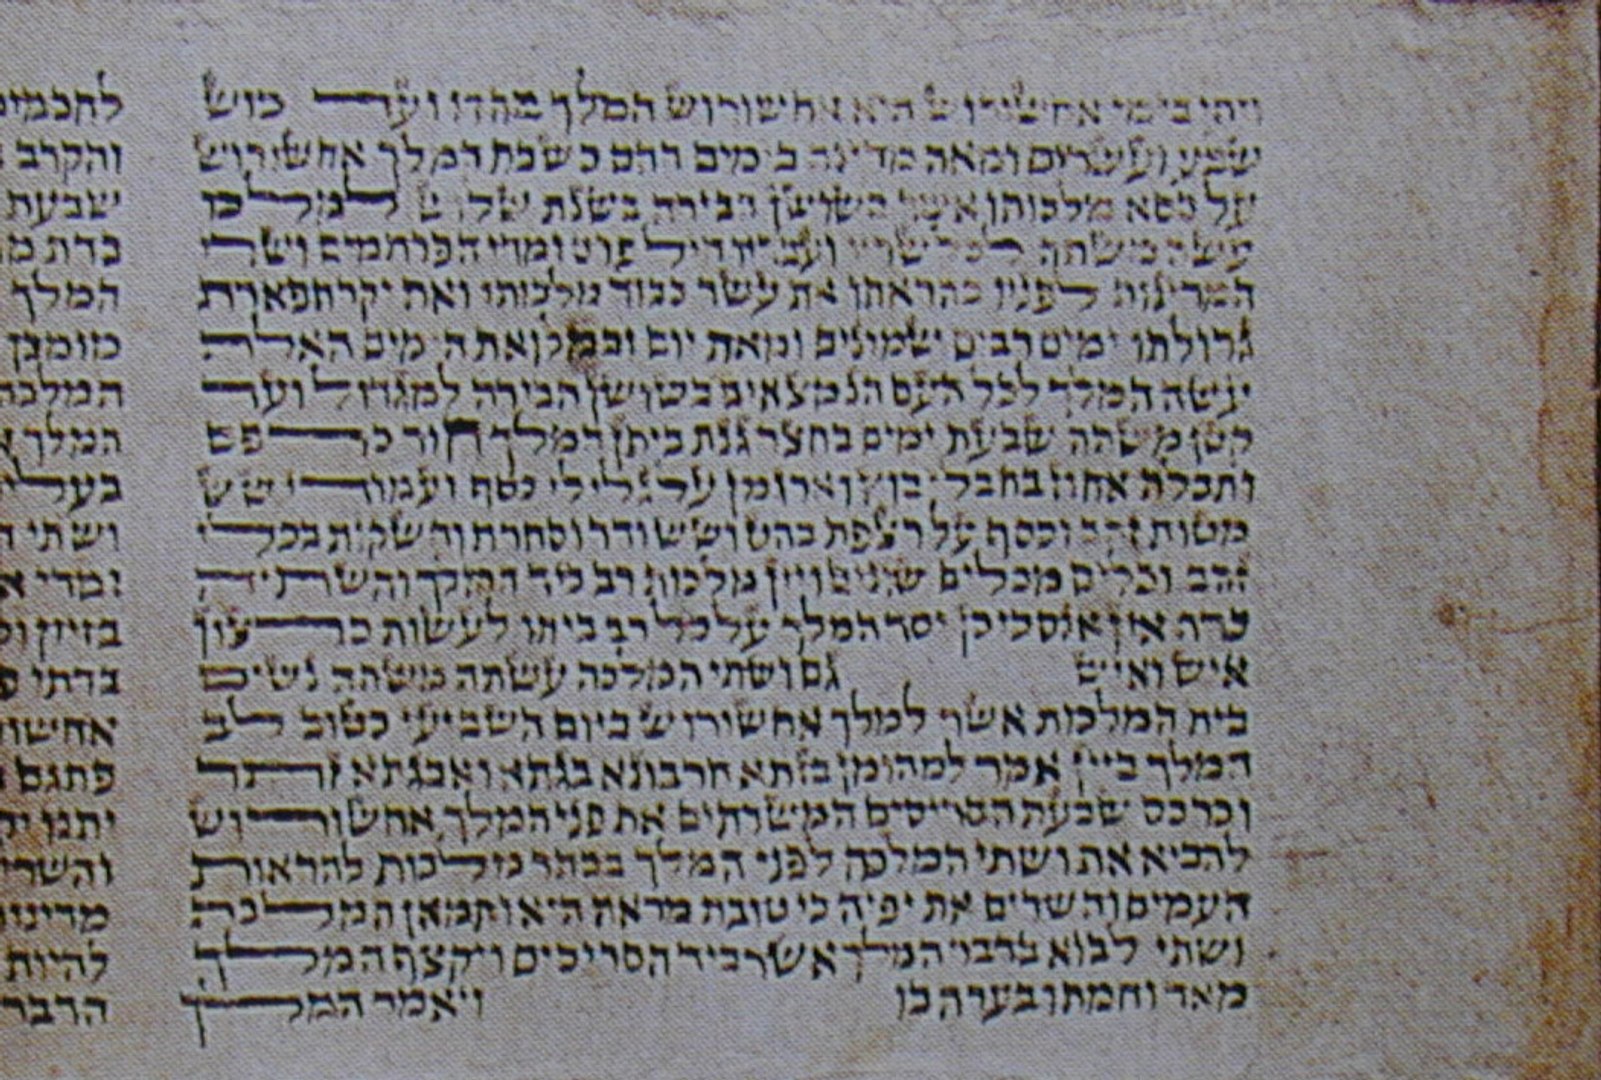 ויהי בימי אחשורוש הוא אחשורוש המלך מהדו ועד כוש
שבע ועשרים ומאה מדינה בימים ההם כשבת המלך אחשורוש
על כסא מלכותו אשר בשושן הבירה בשנת שלוש למלכו
עשה משתה לכל שריו ועבדיו חיל פרס ומדי הפרתמים ושרי
המדינות לפניו בהראתו את עשר כבוד מלכותו ואת יקר תפארת
גדולתו ימים רבים שמונים ומאת יום ובמלואת הימים האלה
עשה המלך לכל העם הנמצאים בשושן הבירה למגדול ועד
קטן משתה שבעת ימים בחצר גנת ביתן המלך חור כרפס
ותכלת אחוז בחבלי בוץ וארגמן על גלילי כסף ועמודי שש
מטות זהב וכסף על רצפת בהט ושש ודר וסחרת והשקות בכלי
זהב וכלים מכלים שונים ויין מלכות רב כיד המלך והשתיה
כדת אין אנס כי כן יסד המלך על כל רב ביתו לעשות כרצון
איש ואיש גם ושתי המלכה עשתה משתה נשים
בית המלכות אשר למלך אחשורוש ביום השביעי כטוב לב
המלך ביין אמר למהומן בזתא חרבונא בגתא ואבגתא זתר
וכרכס שבעת הסריסים המשרתים את פני המלך אחשורוש
להביא את ושתי המלכה לפני המלך בכתר מלכות להראות
העמים והשרים את יפיה כי טובת מראה היא ותמאן המלכה
ושתי לבוא בדבר המלך אשר ביד הסריסים ויקצף המלך
מאד וחמתו בערה בו ויאמר המלך
לחכמים
והקרב
שבעת
כדת
המלך
מומכן
המלכה
המלך
בעלי
ושתי
ומדי
בזיון
בדתי
אחשו
פתגם
יתנו
והשרי
מדינו
להיות
הדבר